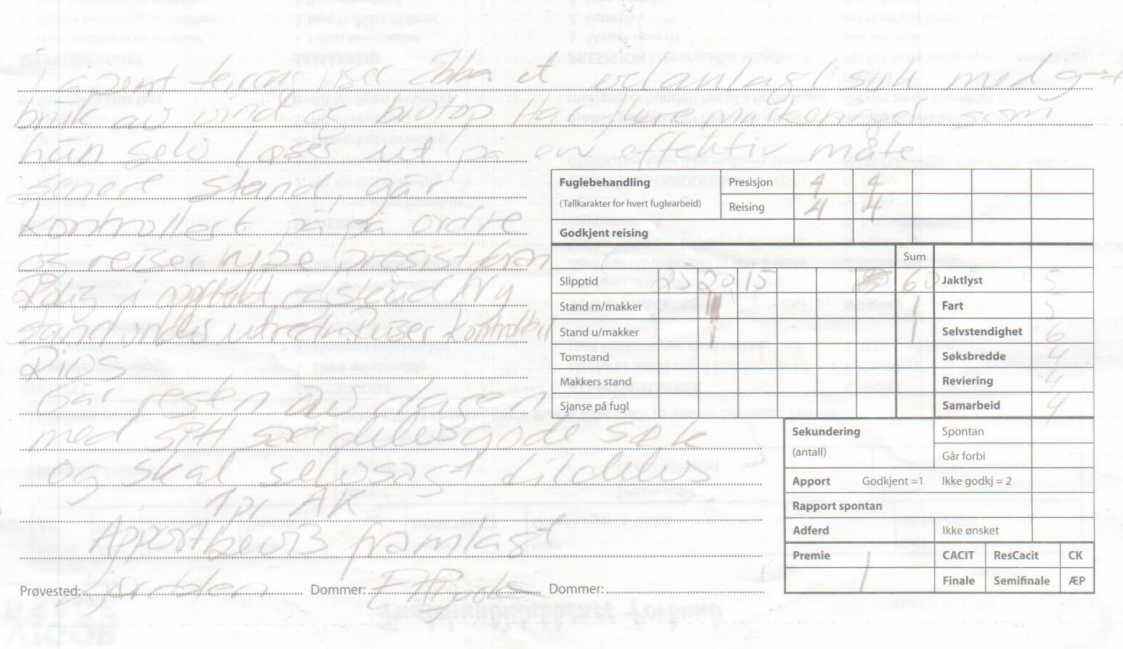 I åpent terreng viser et velanlagt søk med god
bruk av vind og biotop Har flere markeringer som
hun selv løser ut på en effektiv måte
senere stand går
kontrollert på på ordre
og reiser rype presist fra
Ro i oppflukt og skudd Ny
stand undes utredn reiser kontrollert
Rips
Går resten av dagen
med sitt særdeles gode søk
og skal selvsagt tildeles
1 pr AK
Apportbevis framlagt
Fuglebehandling Presisjon 4 4
(Tallkarakter for hvert fuglearbeid) Reising 4 4
Godkjent reising
Sum
Slipptid 25 20 15 60 Jaktlyst 5
Stand m/makker 1 Fart 5
Stand u/makker 1 1 Selvstendighet 6
Tomstand Søksbredde 4
Makkers stand Reviering 4
Sjanse på fugl Samarbeid 4
Sekundering Spontan
(antall) Går forbi
Apport Godkjent =1 Ikke godkj = 2
Rapport spontan
Adferd Ikke ønsket
Premie 1 CACIT ResCacit CK
Finale Semifinale ÆP
Prøvested: Dommer: Dommer: